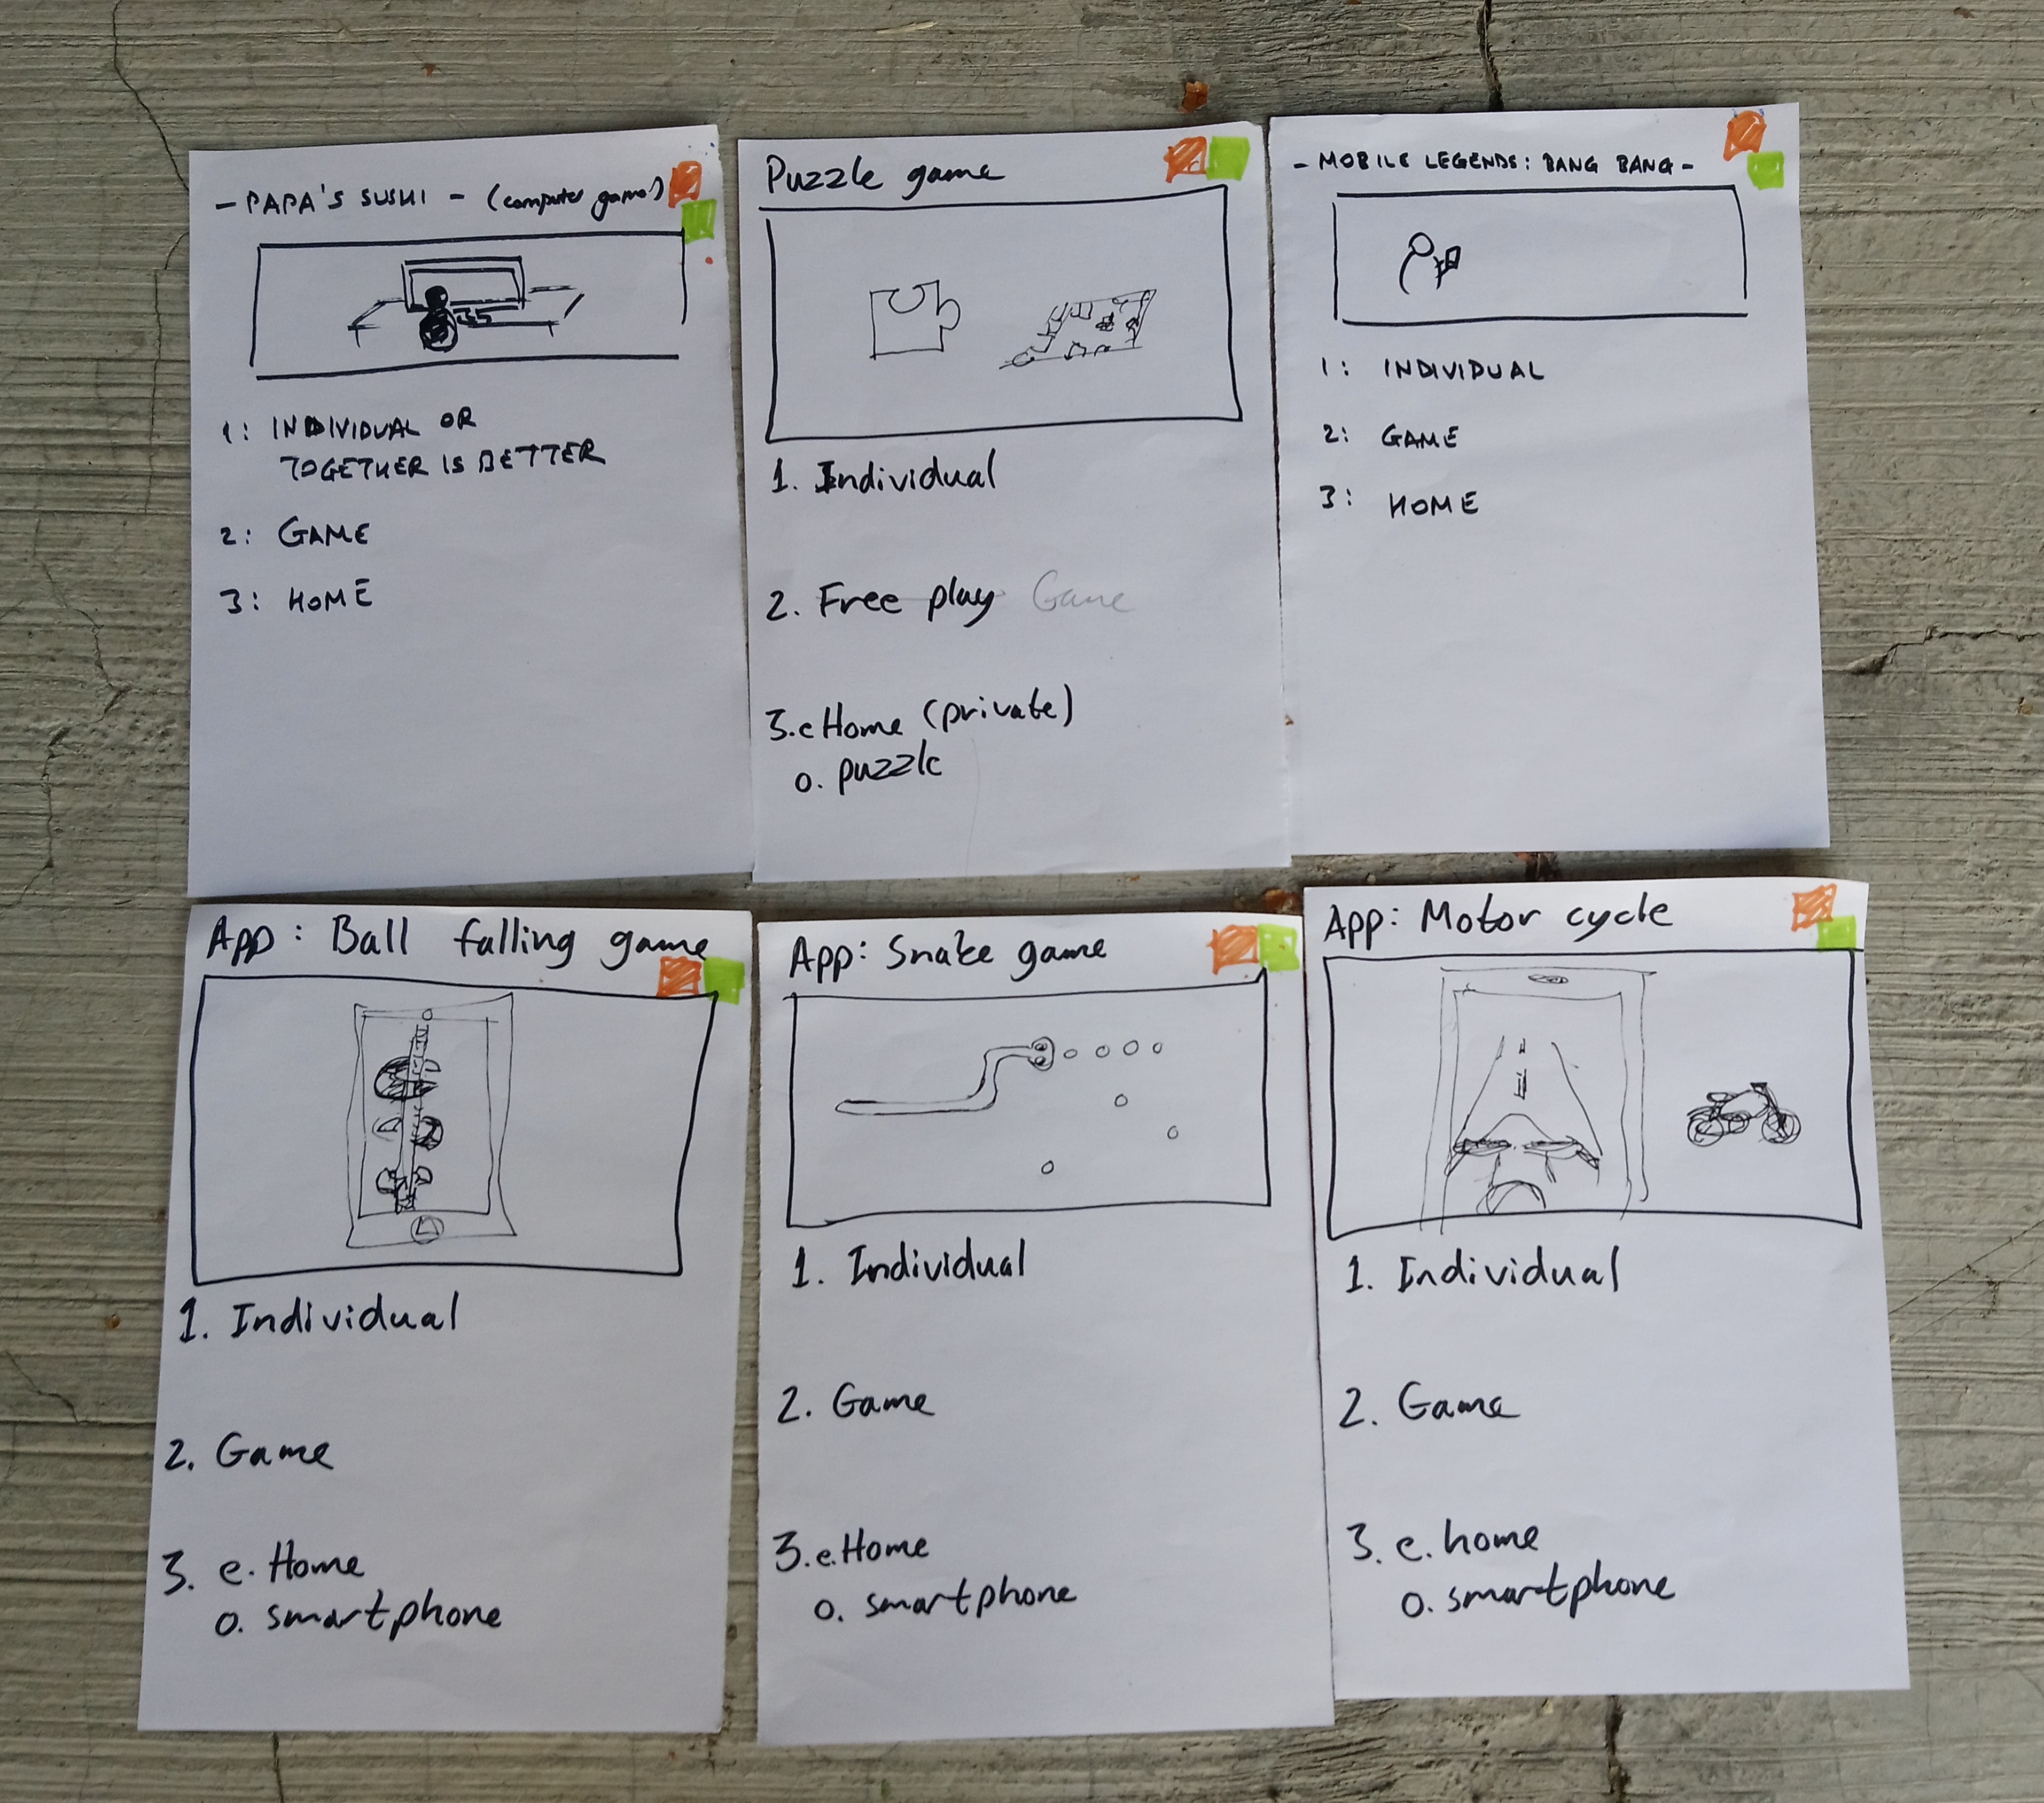 - PAPA'S SUSHI - (computer game)
1: INDIVIDUAL OR
TOGETHER IS BETTER
2: GAME
3: HOME
Puzzle game
1. Individual
2. Free play Game
3. e Home (private)
o. puzzle
- MOBILE LEGENDS: BANG BANG -
1: INDIVIDUAL
2: GAME
3: HOME
App: Ball falling game
1. Individual
2. Game
3. e. Home
o. smartphone
App: Snake game
1. Individual
2. Game
3. e. Home
o. smartphone
App: Motor cycle
1. Individual
2. Game
3. e. home
o. smartphone